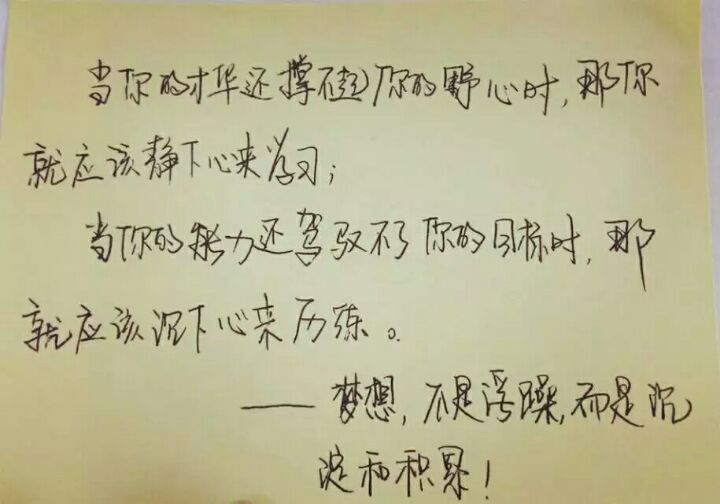 当你的才华还撑不起你的野心时,那你
就应该静下心来学习;
当你的能力还驾驭不了你的目标时,那
就应该沉下心来历练。
——梦想,不是浮躁,而是沉
淀和积累!